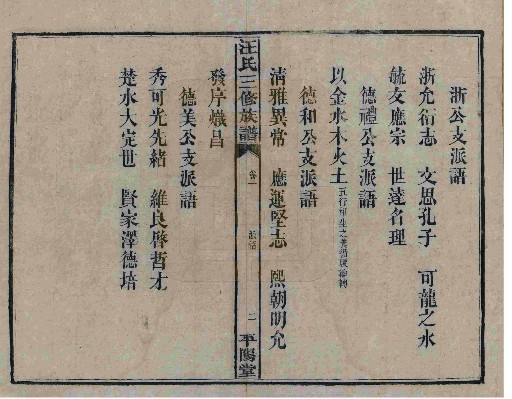 浙公支派語
浙允衍志 文思孔子 可龍之水
毓友應宗 世達名理
德禮公支派語
以金水木火土
德和公支派語
清雅異常 應運堅志 熙朝明允
汪氏三修族譜
卷一
派語
二
平陽堂
發庠熾昌
德美公支派語
秀可光先緒 維良啓哲才
楚水大定世 賢家澤德培